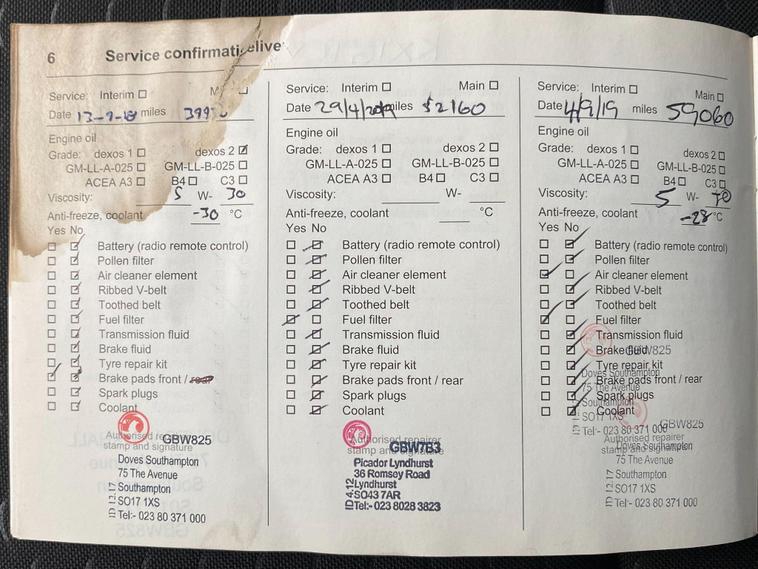 6
Service confirmati
elive
Service: Interim
Date 13-9-18 miles
Engine oil
Grade: dexos 1 dexos 2
GM-LL-A-025 GM-LL-B-025
ACEA A3 B4 C3
Viscosity: 5 W- 30
Anti-freeze, coolant -30 °C
Yes No
Battery (radio remote control)
Pollen filter
Air cleaner element
Ribbed V-belt
Toothed belt
Fuel filter
Transmission fluid
Brake fluid
Tyre repair kit
Brake pads front / rear
Spark plugs
Coolant
Authorised re GBW825
stamp and signature
Doves Southampton
75 The Avenue
Southampton
SO17 1XS
Tel:- 023 80 371 000
ID 12.17
Service: Interim Main
Date 29/4/2019 miles 52160
Engine oil
Grade: dexos 1 dexos 2
GM-LL-A-025 GM-LL-B-025
ACEA A3 B4 C3
Viscosity: W-
Anti-freeze, coolant °C
Yes No
Battery (radio remote control)
Pollen filter
Air cleaner element
Ribbed V-belt
Toothed belt
Fuel filter
Transmission fluid
Brake fluid
Tyre repair kit
Brake pads front / rear
Spark plugs
Coolant
Authorised repairer
stamp and signature
GBW7B3
Picador Lyndhurst
36 Romsey Road
Lyndhurst
SO43 7AR
Tel:- 023 8028 3823
ID 4.12
Service: Interim Main
Date 4/9/19 miles 59060
Engine oil
Grade: dexos 1 dexos 2
GM-LL-A-025 GM-LL-B-025
ACEA A3 B4 C3
Viscosity: 5 W- 30
Anti-freeze, coolant -28 °C
Yes No
Battery (radio remote control)
Pollen filter
Air cleaner element
Ribbed V-belt
Toothed belt
Fuel filter
Transmission fluid
Brake fluid GBW825
Tyre repair kit
Doves Southampton
Brake pads front / rear
75 The Avenue
Spark plugs
Southampton
Coolant
SO17 1XS
Tel:- 023 80 371 000
GBW825
Authorised repairer
stamp and signature
Doves Southampton
75 The Avenue
Southampton
SO17 1XS
Tel:- 023 80 371 000
ID 12.17